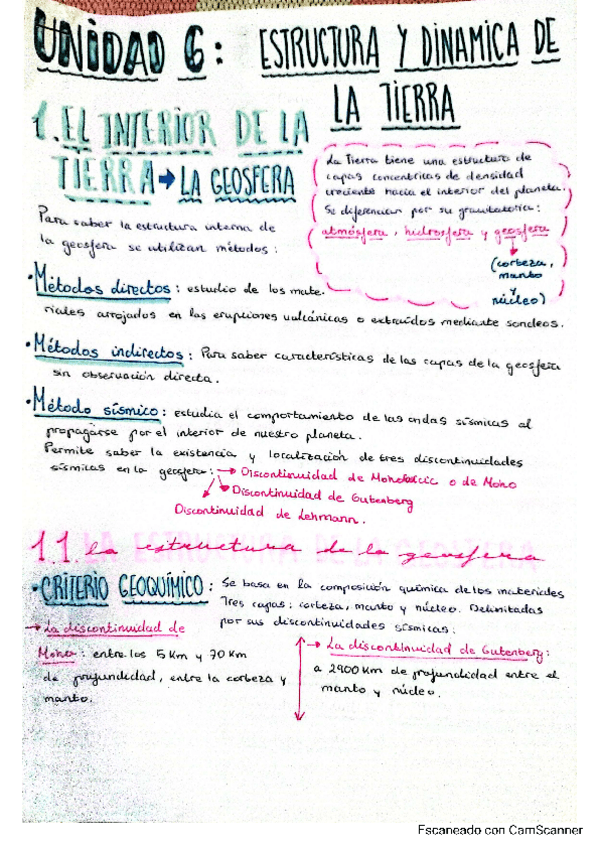 UNIDAD 6: ESTRUCTURA Y DINAMICA DE
LA TIERRA
1. EL INTERIOR DE LA
TIERRA → LA GEOSFERA
La Tierra tiene una estructura de
capas concentricas de densidad
creciente hacia el interior del planeta.
Se diferencian por su gravitatoria:
atmósfera, hidrosfera y geosfera
(corteza,
manto
y
núcleo)
Para saber la estructura interna de
la geosfera se utilizan métodos:
· Métodos directos: estudio de los mate-
riales arrojados en las erupciones volcánicas o extraídos mediante sondeos.
· Métodos indirectos: Para saber características de las capas de la geosfera
sin observación directa.
· Método sísmico: estudia el comportamiento de las ondas sísmicas al
propagarse por el interior de nuestro planeta.
Permite saber la existencia y localización de tres discontinuidades
sísmicas en la geosfera: → Discontinuidad de o de Moho
Discontinuidad de Gutenberg
Discontinuidad de Lehmann.
1.1. la estructura de la geosfera
· CRITERIO GEOQUÍMICO: Se basa en la composición química de los materiales
Tres capas: corteza, manto y núcleo. Delimitadas
por sus discontinuidades sísmicas:
→ La discontinuidad de
Moho: entre los 5 Km y 70 Km
de profundidad, entre la corteza y
manto.
→ La discontinuidad de Gutenberg:
a 2900 Km de profundidad entre el
manto y núcleo.
Escaneado con CamScanner